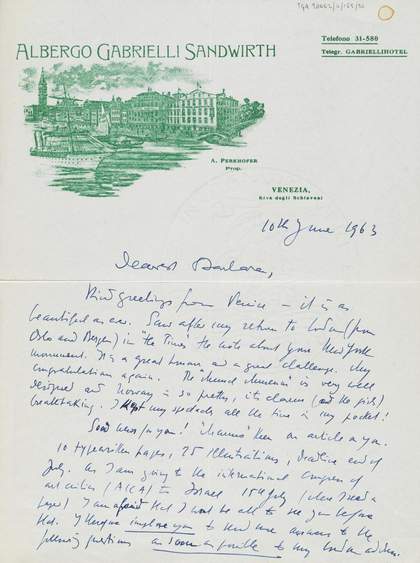 TGA 
ALBERGO GABRIELLI SANDWIRTH
Telefono 31-580
Telegr. GABRIELLIHOTEL
A. PERKHOFER
Prop.
VENEZIA,
Riva degli Schiavoni
10th June 1963
Dearest Barbara,
Kind greetings from Venice – it is as
beautiful as ever. Saw after my return to London (from
Oslo and Bergen) in "the Times" the note about your New York
monument. It is a great honour and a great challenge. My
congratulations again. The Munch Museum is very well
designed and Norway is so pretty, its closeness (and the girls)
breathtaking. I kept my spectacles all the time in my pocket!
Good news for you! wants then an article on you.
10 typewritten pages, 25 illustrations, deadline end of
July. As I am going to the international congress of
art critics (AICA) to Israel 15th July (where I read a
paper) I am afraid that I won't be able to see you before
that. I therefore implore you to send me answers to the
following questions as soon as possible to my London address.